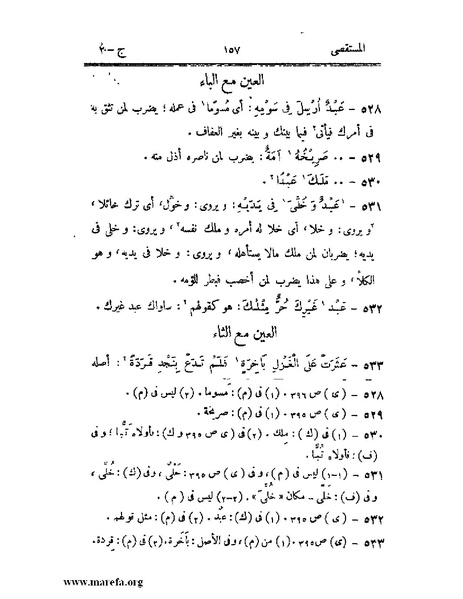 المستقصى ١٥٧ ج-٢
العين مع الباء
٥٢٨ - عَبْدٌ أُرْسِلَ فِى سَوْمِهِ: أى مُسوّما١ فى عمله؛ يضرب لمن تثق به
فى أمرك فيأتى٢ فيما بينك و بينه بغير العفاف.
٥٢٩ - ٠٠ صَرِيْخُهُ١ أَمَةٌ: يضرب لمن ناصره أذل منه.
٥٣٠ - ٠٠ مَلَكَ١ عَبْدًا٢.
٥٣١ - ١عَبْدٌ وَ خَلًى١ فِى يَدَيْهِ: و يروى: و خَوْل، أى ترك خائلا،
٢و يروى: و خلا، أى خلا له أمره و ملك نفسه٢، و يروى: و حلى فى
يديه؛ يضربان لمن ملك مالا يستأهله، و يروى: و خلا فى يديه، و هو
الكلأ، و على هذا يضرب لمن أخصب فبطر للؤمه.
٥٣٢ - عَبْد١ غَيْرِكَ حُرٌّ مِثْلُكَ: هو كقولهم٢: ساواك عبد غيرك.
العين مع الثاء
٥٣٣ - عَثَرَتْ عَلَى الْغَزْلِ بَأَخِرَةٍ١ فَلَمْ تَدَعْ بِنَجْدٍ قَرَدَةً٢: أصله
٥٢٨ - (ى) ص ٣٩٦. (١) فى (م): مسوما. (٢) ليس فى (م).
٥٢٩ - (ى) ص ٣٩٥. (١) فى (م): صريخة.
٥٣٠ - (١) فى (ك): مِلك. (٢) فى (ى ص ٣٩٥ و ك): فأولاه تَبًّا؛ و فى
(ف): فأولاه تُبًّا.
٥٣١ - (١-١) ليس فى (م)، وفى (ى) ص ٣٩٥: حَلْىٌ، وفى (ك): خُلِّى،
وفى (ف): خَلّى - مكان «خُلِّىَ». (٢-٢) ليس فى (م).
٥٣٢ - (ى) ص ٣٩٥. (١) فى (ك): عبدٌ. (٢) فى (م): مثل قولهم.
٥٣٣ - (ى) ص ٣٩٥. (١) من (م)، وفى الأصل: بآخرة. (٢) فى (م): قِردة.
www.marefa.org